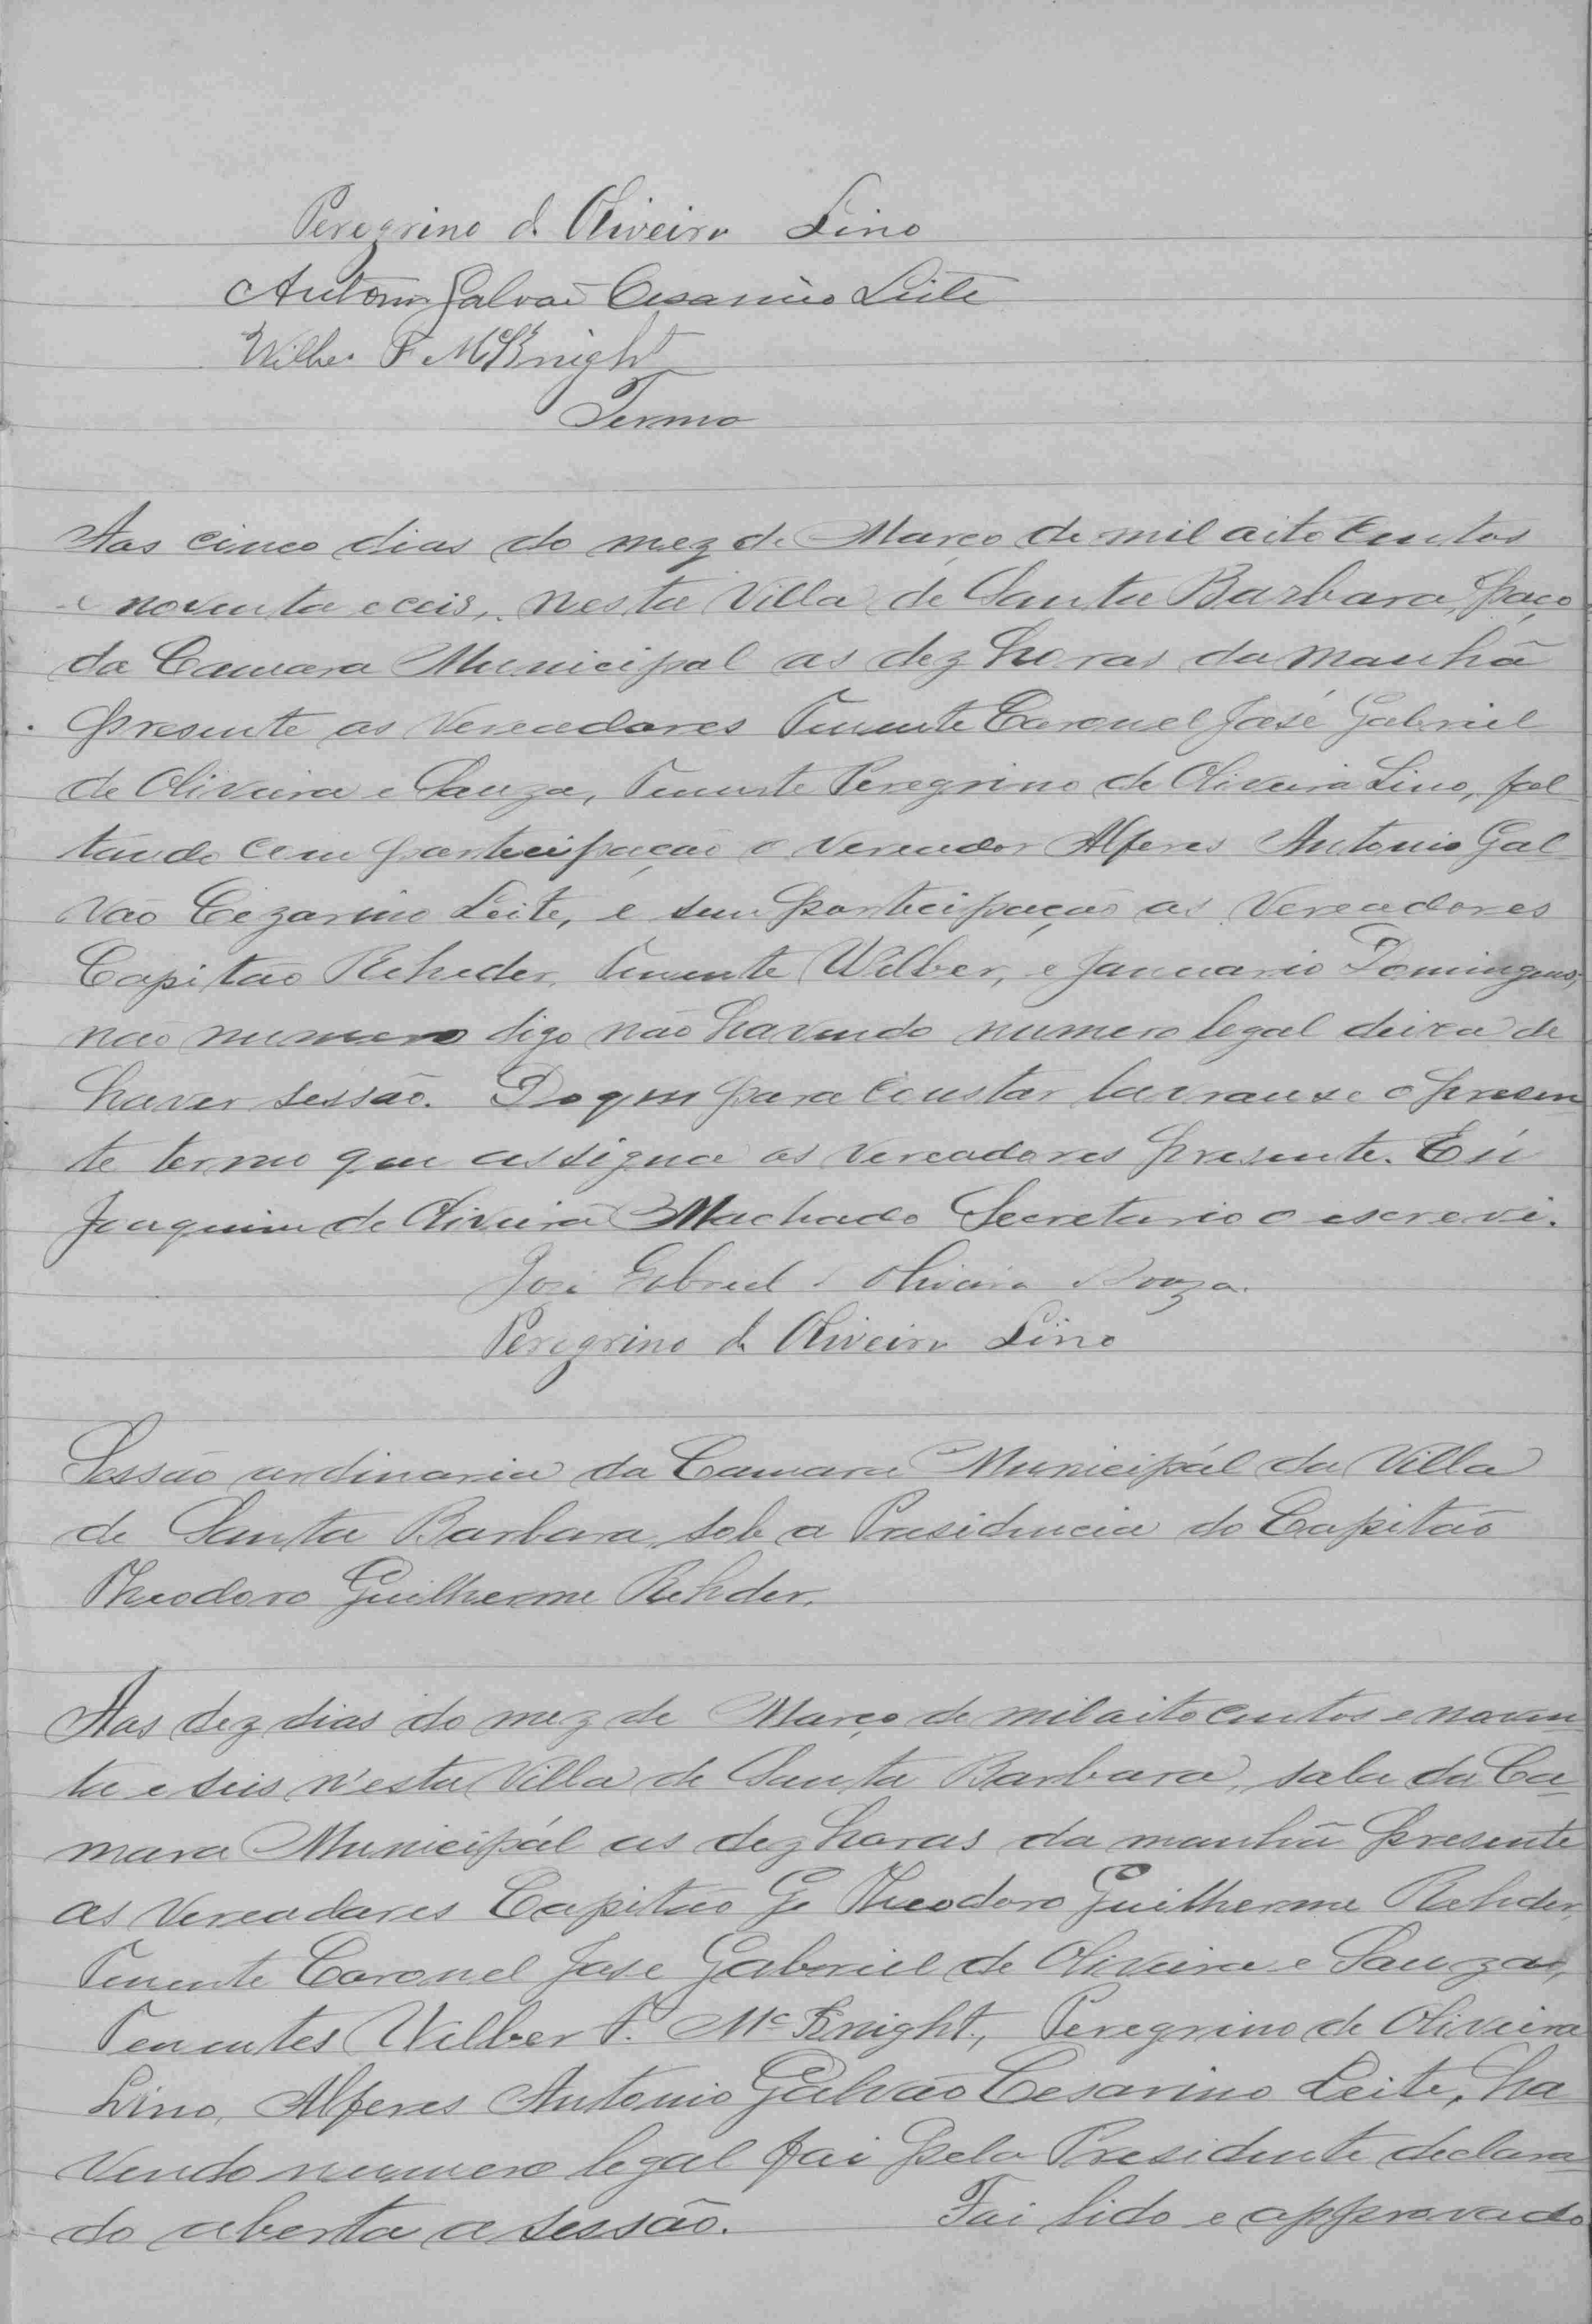 Peregrino de Oliveira Lino
Antonio Galvão Cesarino Leite
Wilber F McKnight
Termo
Aos cinco dias do mez de Março de mil oito centos
e noventa e ceis, nesta Villa de Santa Barbara, paço
da Camara Municipal as dez horas da manhã
presente os Vereadores Tenente Coronel José Gabriel
de Oliveira e Souza, Tenente Peregrino de Oliveira Lino, fal
tando com participação o Vereador Alferes Antonio Gal
vão Cezarino Leite, e sem participação os Vereadores
Capitão Reheder, Tenente Wilber, e Januario Domingues,
não numero digo não havendo numero legal deixa de
haver sessão. Do que para constar lavrou-se o presen
te termo que assigna os Vereadores presente. Eu
Joaquim de Oliveira Machado Secretario o escrevi.
José Gabriel d Oliveira Souza.
Peregrino de Oliveira Lino
Sessão ordinaria da Camara Municipál da Villa
de Santa Barbara, sob a Presidencia do Capitão
Theodoro Guilherme Rehder.
Aos dez dias do mez de Março de mil oito centos e noven
ta e seis n'esta Villa de Santa Barbara, sala da Ca-
mara Municipál as dez horas da manhã presente
os Vereadores Capitão G. Theodoro Guilherme Rehder,
Tenente Coronel Jose Gabriel de Oliveira e Souza,
Tenentes Wilber F. Mc Knight, Peregrino de Oliveira
Lino, Alferes Antonio Galvão Cesarino Leite, ha
vendo numero legal foi pelo Presidente declara-
do aberta a sessão. Foi lido e approvado